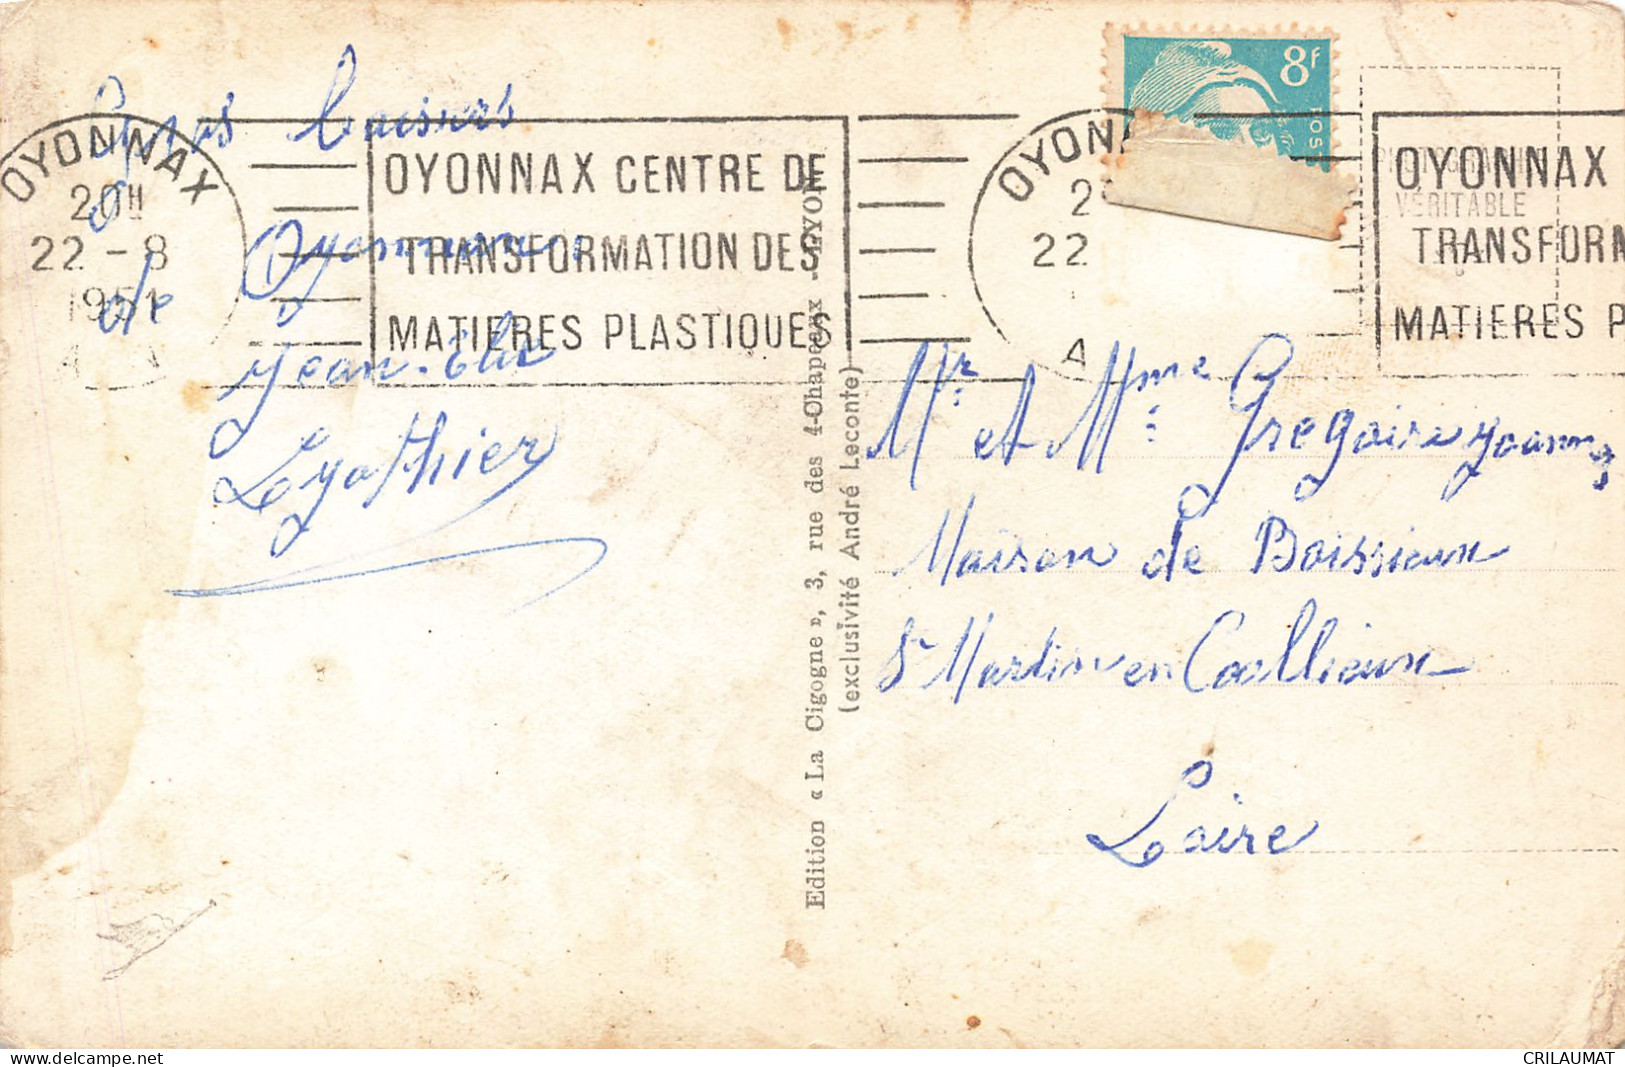 Gros baisers
de Oyonnax
Jean-Elie
Lyathier
OYONNAX
20H
22 - 8
1951
OYONNAX CENTRE DE
TRANSFORMATION DES
MATIERES PLASTIQUES
Edition « La Cigogne », 3, rue des 4-Chapeaux - LYON
(exclusivité André Leconte)
8F
POS
OYONNA
22
A
OYONNAX
TRANSFORM
MATIERES P
VÉRITABLE
Mr et Mme Gregoire Joanny
Maison de Boissieux
St Martin en Coallieux
Loire
CRILAUMAT